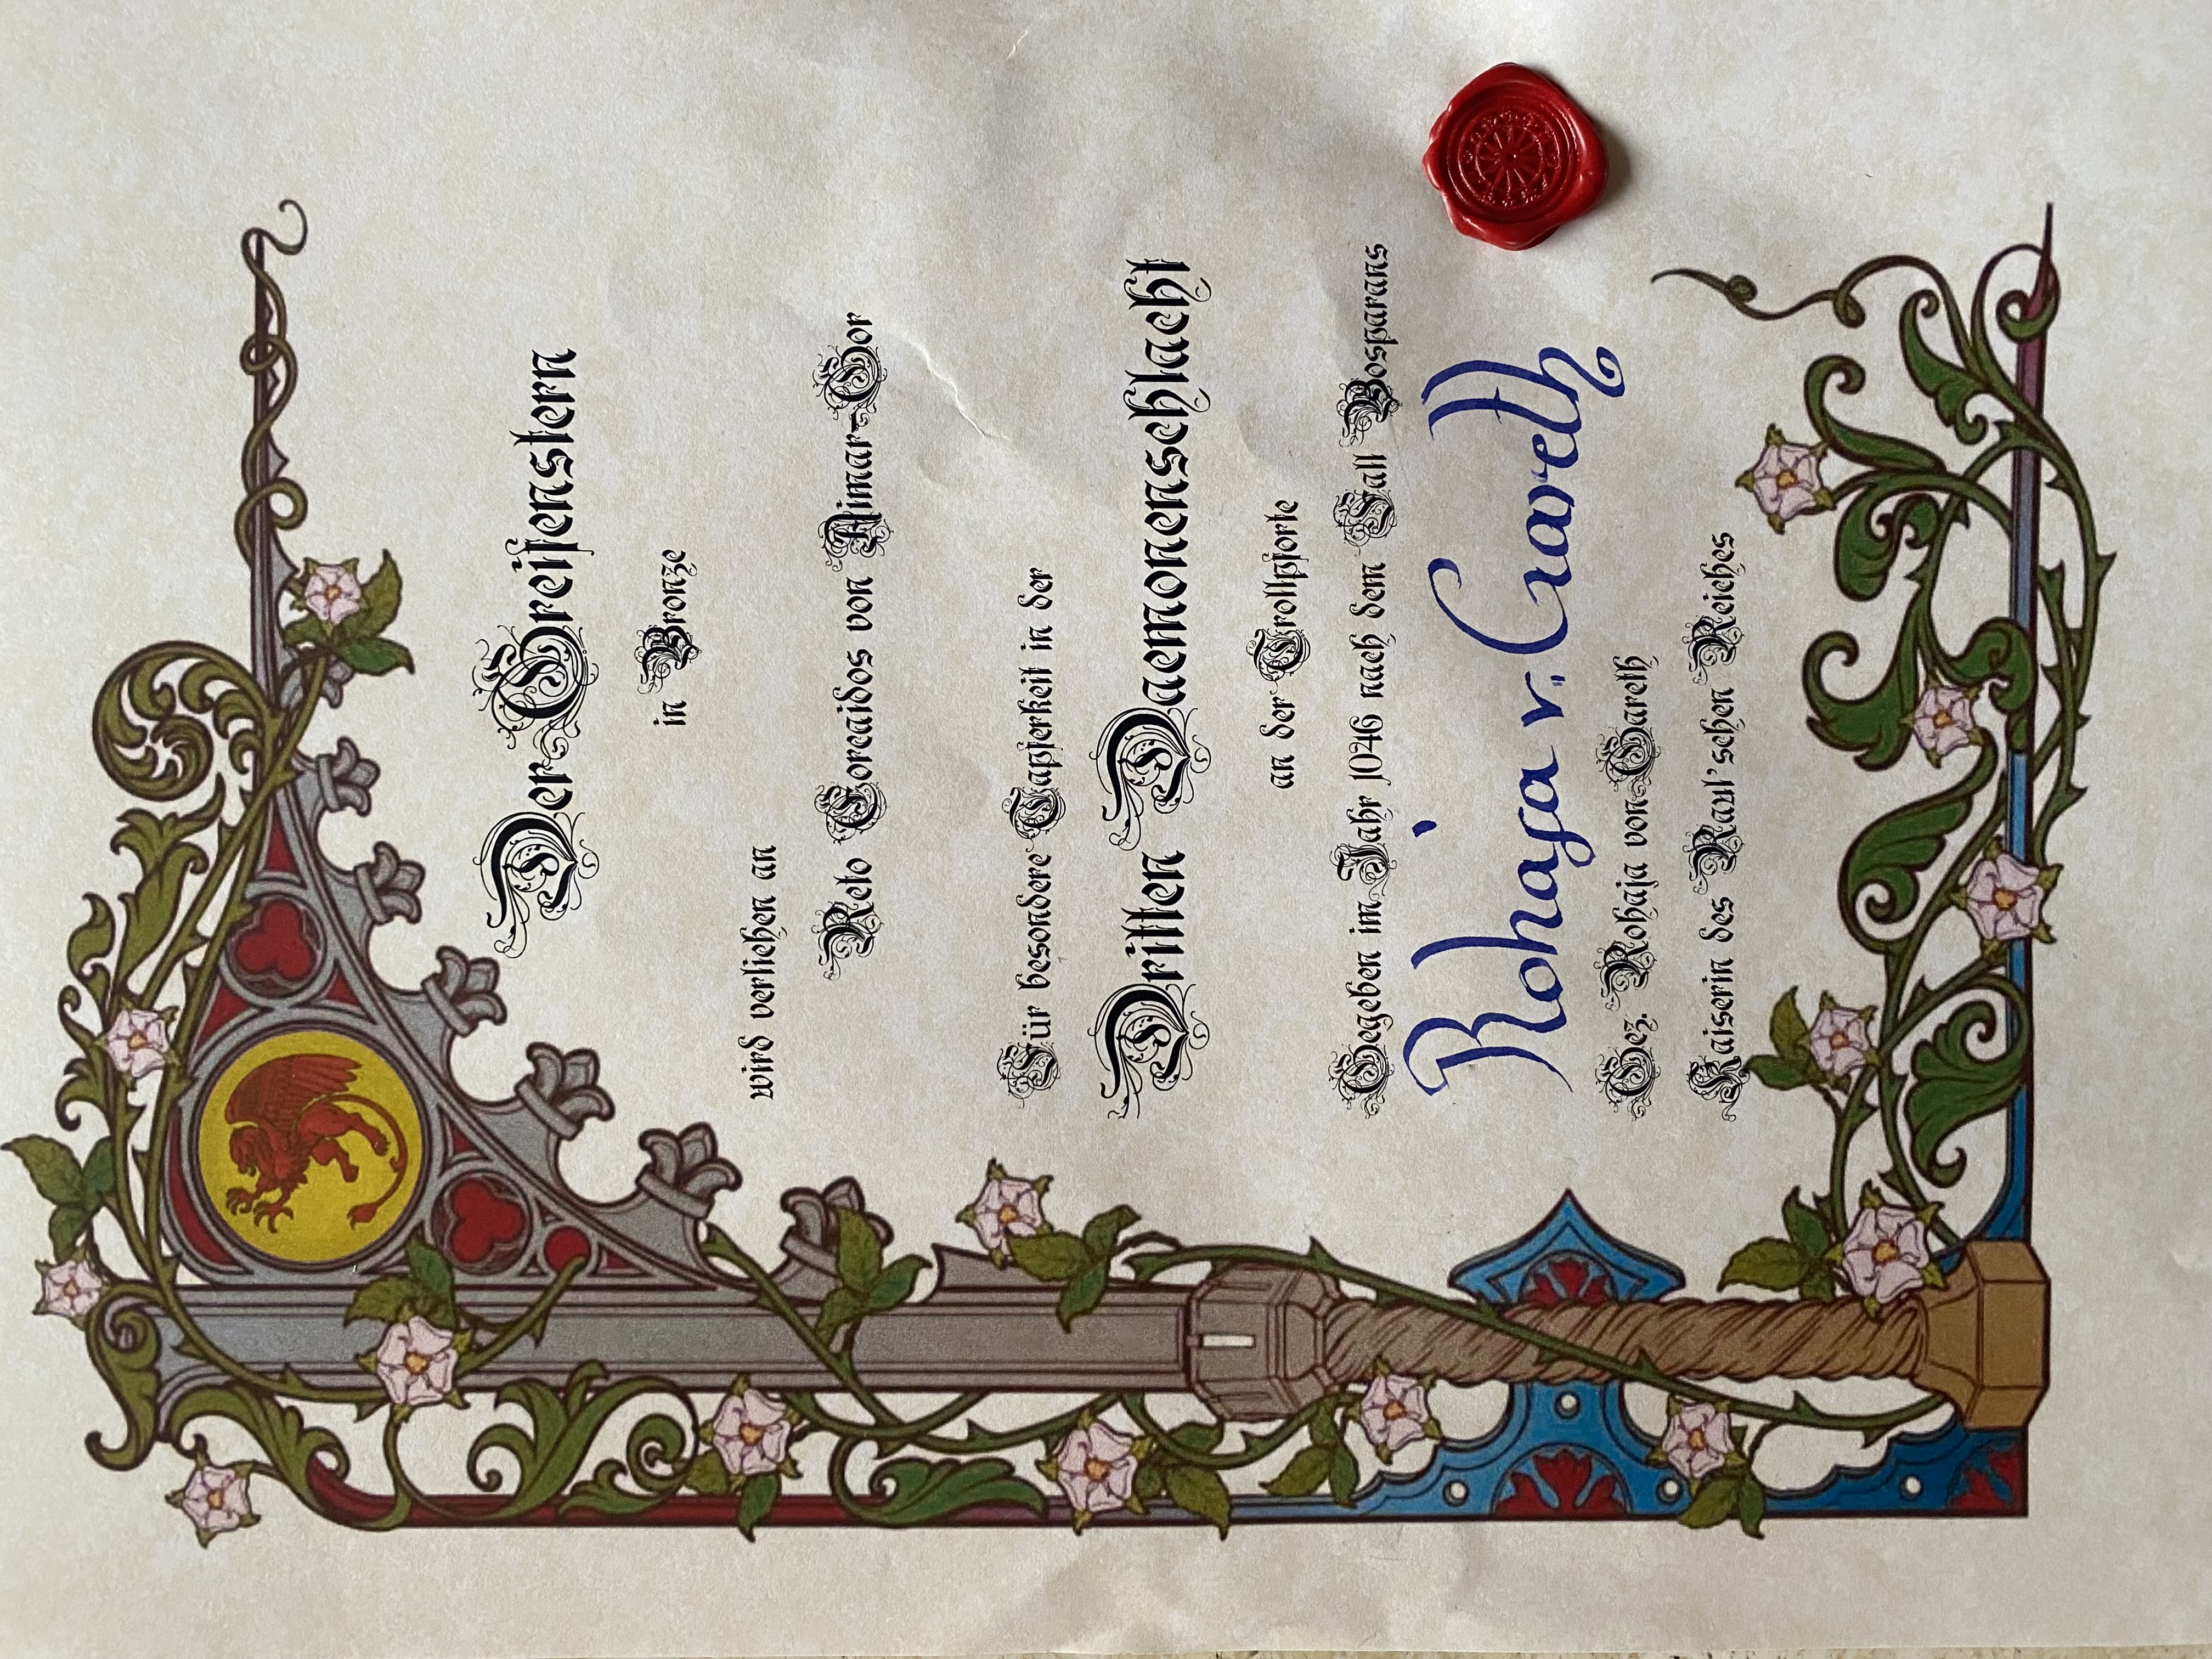 Der Greifenstern
in Bronze
wird verliehen an
Reto Torcaidos von Aimar-Gor
Für besondere Tapferkeit in der
Dritten Daemonenschlacht
an der Trollpforte
Gegeben im Jahr 1046 nach dem Fall Bosparans
Rohaja v. Gareth
Gez. Rohaja von Gareth
Kaiserin des Raul'schen Reiches